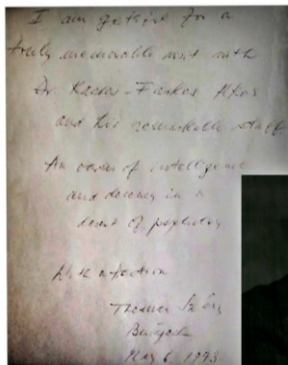 I am grateful for a
truly memorable visit with
Dr
and his remarkable staff
An oasis of intelligence
and decency in a
desert of psychiatry
With affection
Thomas Szasz
May 6, 1993